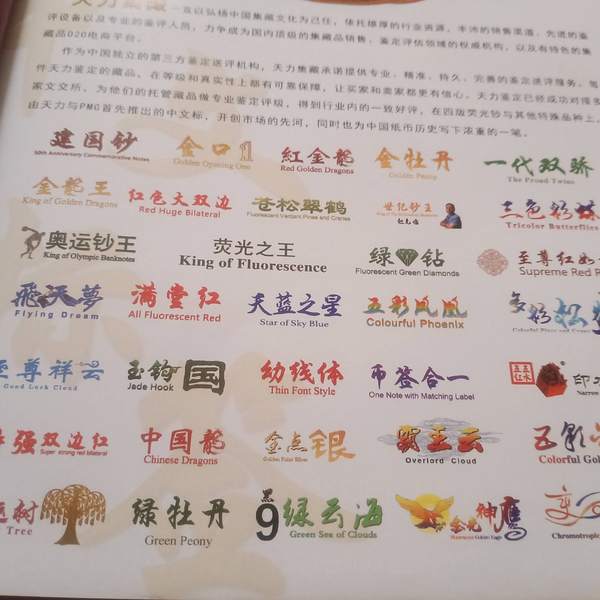 一直以弘扬中国集藏文化为己任，依托雄厚的行业资源，丰沛的销售渠道，先进的
评设备以及专业的鉴评人员，力争成为国内顶级的集藏品销售、鉴定评估领域的权威机构，以及有特色的集
藏品O2O电商平台。
作为中国独立的第三方鉴定送评机构，天力集藏承诺提供专业、精准、持久、完善的鉴定送评服务，每
件天力鉴定的藏品，在等级和真实性上都有可靠保障，让买家和卖家都更有信心。天力鉴定已经成功对接多
家文交所，为他们的托管藏品做专业鉴定评级，得到行业内的一致好评，在四版荧光钞与其他特殊品种上，
由天力与PMG首先推出的中文标，开创市场的先河，同时也为中国纸币历史写下浓重的一笔。
建国钞 金口1 红金龙 金牡丹 一代双骄
50th Anniversary Commemorative Notes Golden Opening One Red Golden Dragons Golden Peony The Proud Twins
金龙王 红色大双边 苍松翠鹤 世纪钞王 三色粉蝶
King of Golden Dragons Red Huge Bilateral Fluorescent Verdant Pines and Cranes Tricolor Butterflies
奥运钞王 荧光之王 绿 钻 至尊红
King of Olympic Banknotes King of Fluorescence Fluorescent Green Diamonds Supreme Red
飛天夢 满堂红 天蓝之星 五彩凤凰
Flying Dream All Fluorescent Red Star of Sky Blue Colourful Phoenix
至尊祥云 玉钩国 幼线体 币签合一 印
Good Luck Cloud Jade Hook Thin Font Style One Note with Matching Label Narrow
强双边红 中国龙 金点银 霸王云 五彩
Super strong red bilateral Chinese Dragons Golden Point Silver Overlord Cloud Colorful
树 绿牡丹 黑9 绿云海 金光神鹰 变
Tree Green Peony Green Sea of Clouds Chromotropic